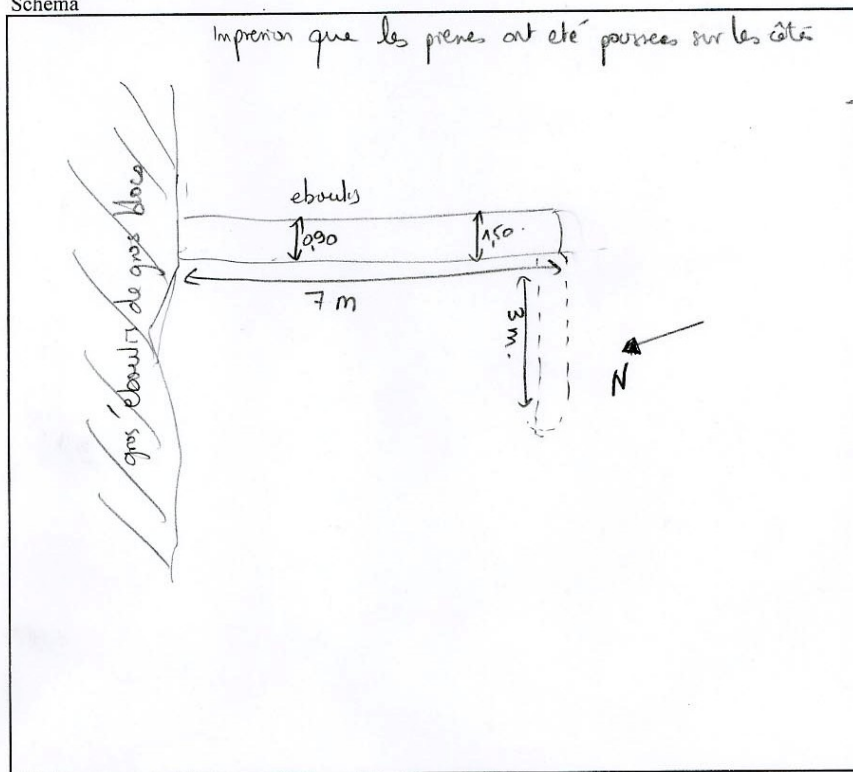 Schéma
Impression que les pierres ont été poussées sur les côtés
gros éboulis de gros blocs
eboulis
0,90
1,50
7 m
3 m.
N